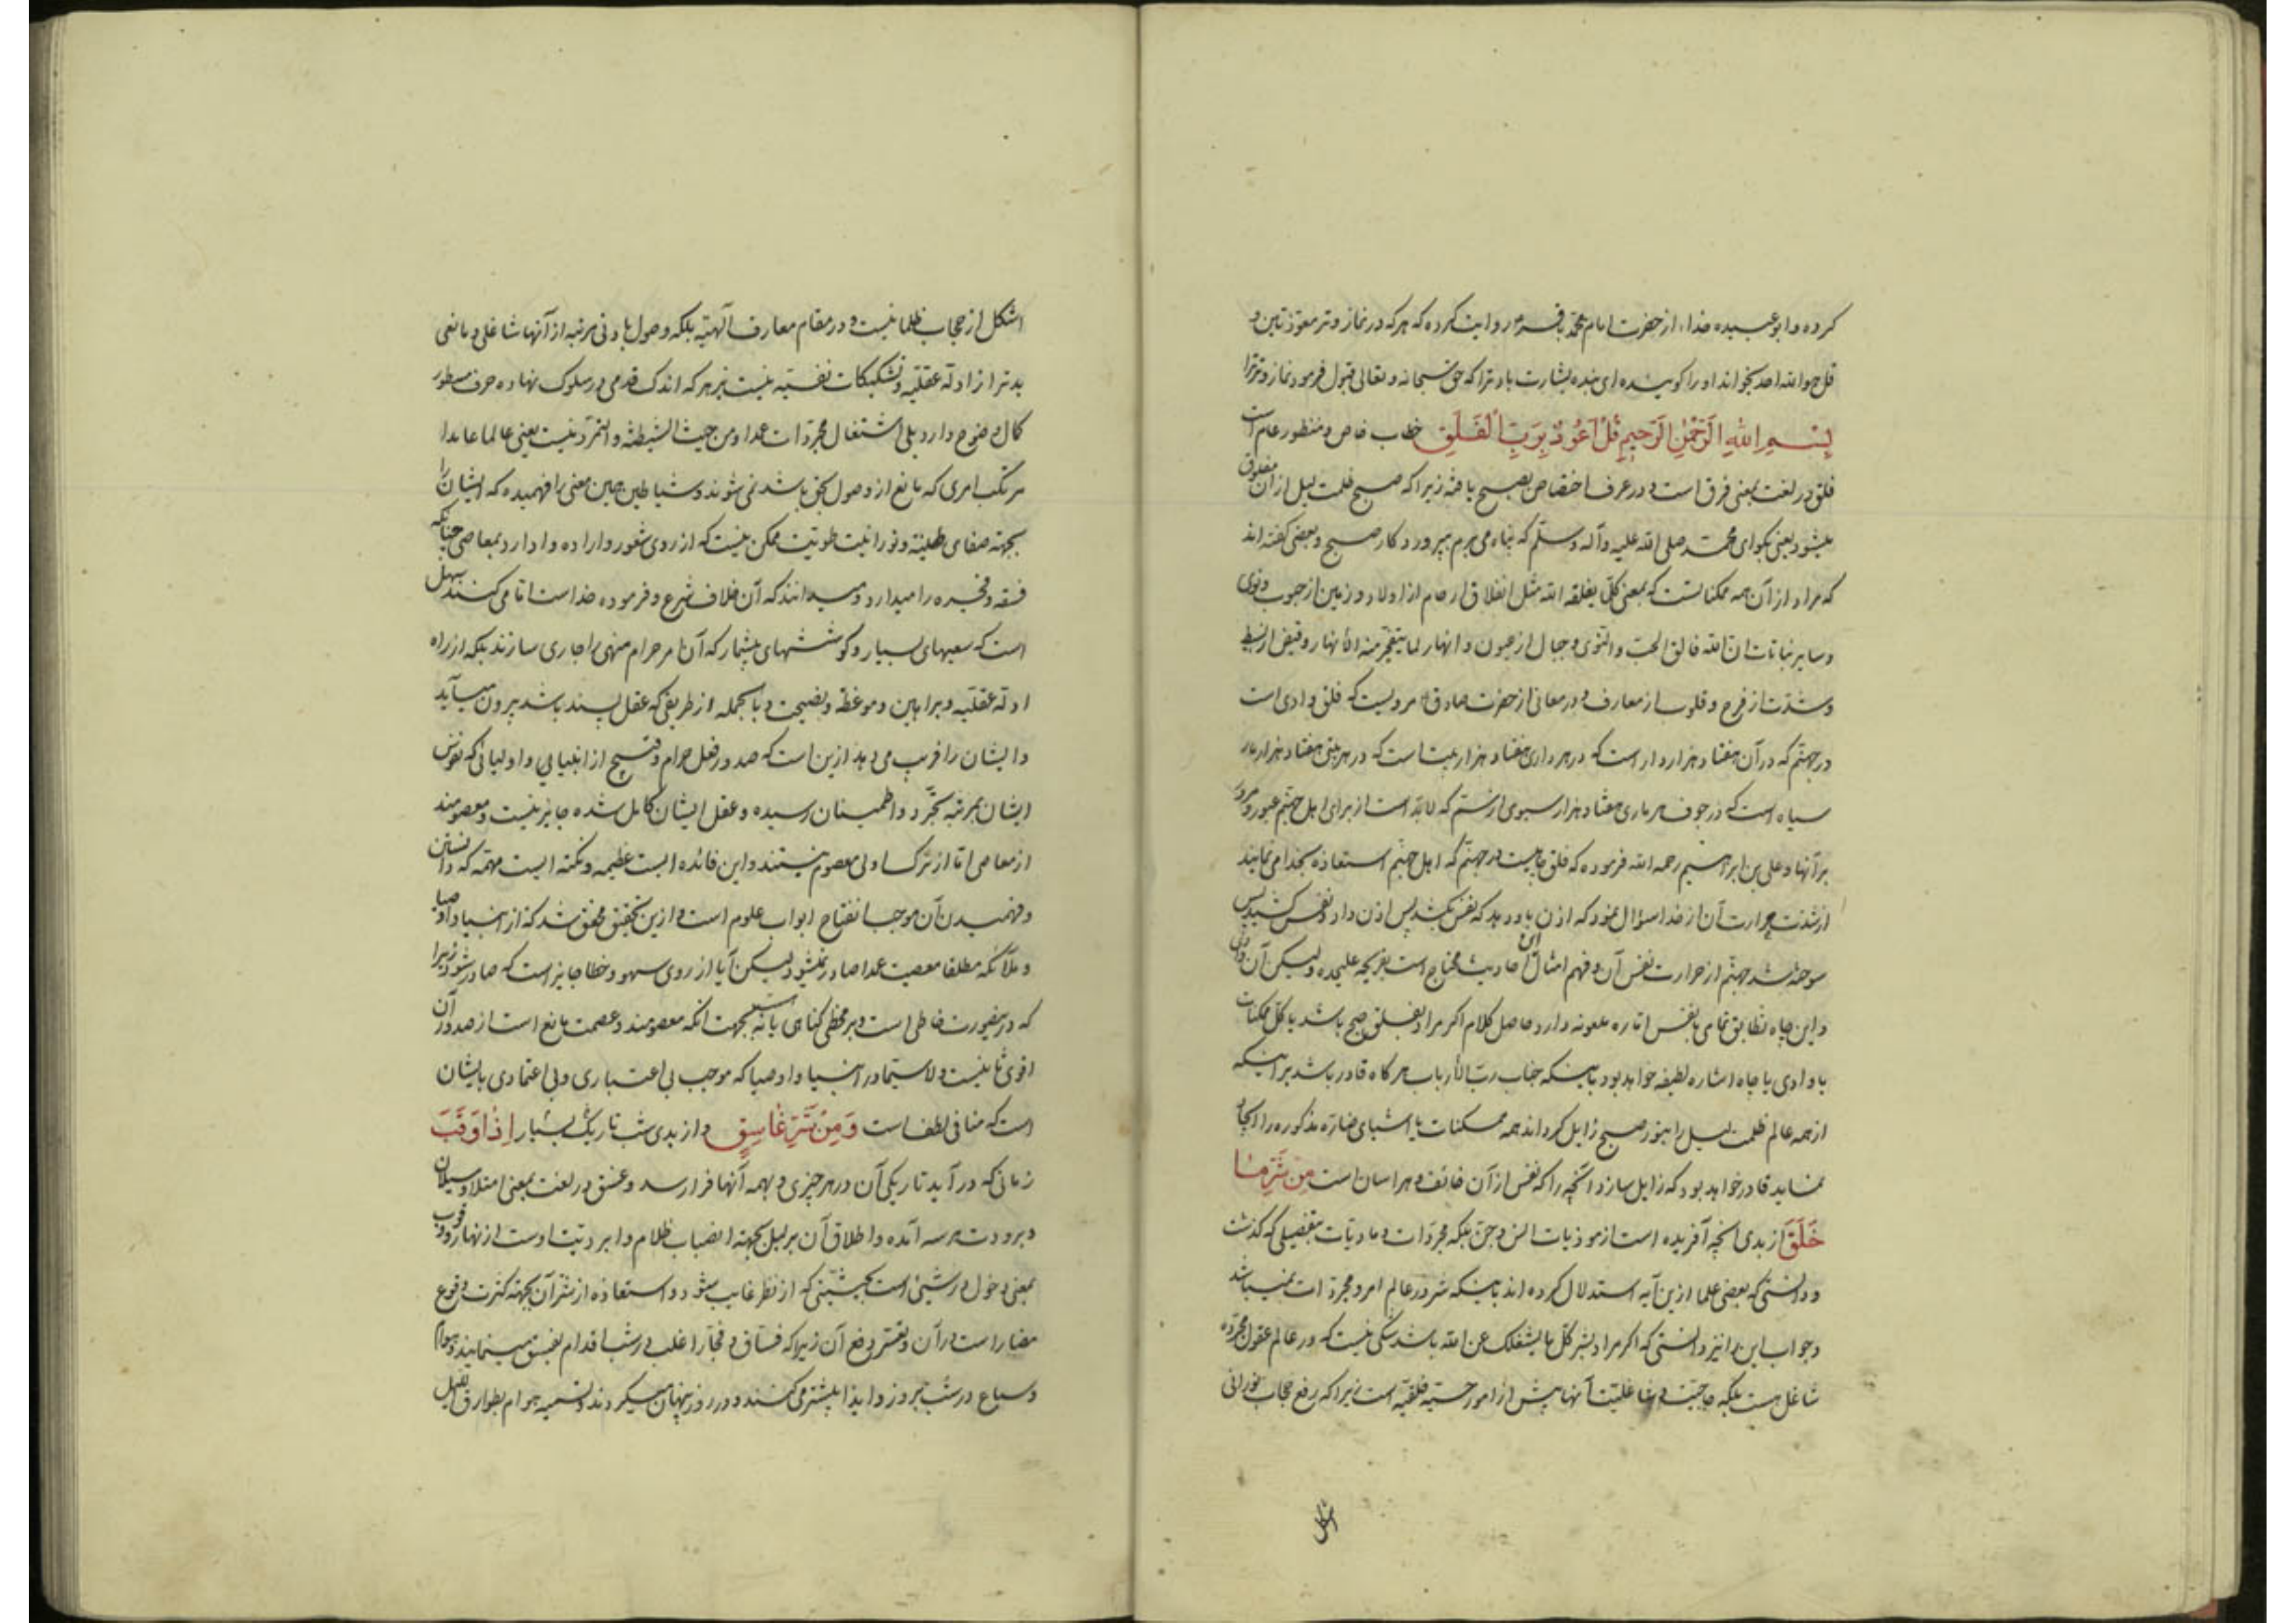 کرده و ابو عبیده حذاء از حضرت امام محمد باقر روایت کرده که هرکه در نماز وتر معوّذتین و
قل هو الله احد بخواند او را گویند ای بنده بشارت باد ترا که حق سبحانه و تعالی قبول فرمود نماز وتر ترا
بِسْمِ اللهِ الرَّحْمٰنِ الرَّحِیمِ قُلْ اَعُوذُ بِرَبِّ الْفَلَقِ خطاب خاص و منظور عام است
فلق در لغت بمعنی فرق است و در عرف اختصاص بصبح یافته زیرا که صبح ظلمت لیل از آن مفلوق
میشود یعنی بگو ای محمد صلی الله علیه و آله و سلّم که پناه می برم بپروردگار صبح و بعضی گفته اند
که مراد از آن همه ممکنا تست که بمعنی کلّ یفلقه الله مثل انفلاق ارحام از اولاد و زمین از حبوب و نوی
و سایر نباتات انّ الله فالق الحبّ و النّوی و جبال از عیون و انهار لما یتفجّر منه الأنهار و قبض از بسط
و شدّت از فرح و قلوب از معارف و در معانی از حضرت صادق مرویست که فلق وادی است
در جهنّم که در آن هفتاد هزار دار است که در هر داری هفتاد هزار بیت است که در هر بیتی هفتاد هزار مار
سیاه است که در جوف هر ماری هفتاد هزار سبوی از سمّ که لابدّ است از برای اهل جهنّم عبور و مرور
بر آنها و علی بن ابراهیم رحمه الله فرموده که فلق چاهیست در جهنّم که اهل جهنّم استعاذه بخدا می نمایند
از شدّت حرارت آن از خدا سؤال نمود که اذن باو دهد که نفس بکشد پس اذن داد و نفس کشید پس
سوخته شد جهنّم از حرارت نفس آن و فهم امثال این احادیث محتاج است بقریحه علیحده و لیکن آن وادی
و این چاه تطابق تمامی با نفس امّاره ملعونه دارد حاصل کلام اگر مراد بفلق صبح باشد یا کل ممکنات
یا وادی یا چاه اشاره لطیفه خواهد بود باینکه جناب ربّ الأرباب هرگاه قادر باشد بر اینکه
از همه عالم ظلمت لیل را بنور صبح زایل گرداند همه ممکنات یا اشیای ضارّه مذکوره را ایجاد
نماید قادر خواهد بود که زایل سازد آنچه را که نفس از آن خائف و هراسان است مِنْ شَرِّ مٰا
خَلَقَ از بدی آنچه آفریده است از موذیات انس و جن بلکه مجرّدات و مادیّات بتفصیلی که گذشت
و دانستی که بعضی علما ازین آیه استدلال کرده اند باینکه شر در عالم امر و مجرّدات نمیباشد
و جواب این را نیز دانستی که اگر مراد بشر کلّ ما یشغلک عن الله باشد شکی نیست که در عالم عقول مجرّده
شاغل هست بلکه حاجبیّت و شاغلیّت آنها بیش از امور حسیّه خلقیّه است زیرا که رفع حجاب نورانی
اشکل
اشکل از حجاب ظلمانیست و در مقام معارف الهیّه بلکه وصول بادنی مرتبه از آنها شاغلی و مانعی
بدتر از ادلّه عقلیّه و تشکیکات نفسیّه نیست نزد هر که اندک قدمی در سلوک نهاده حرف مسطور
کمال وضوح دارد بلی اشتغال مجرّدات عمدا و من حیث الشیطنة و التمرّد نیست یعنی عالما عامدا
مرتکب امری که مانع از وصول بحق باشد نمی شوند و شیاطین همین معنی را فهمیده که ایشان را
بجهته صفای طینت و نورانیت طویّت ممکن نیست که از روی شعور و اراده وادارد بمعاصی چنانکه
فسقه و فجره را میدارد و میدانند که آن خلاف شرع و فرموده خداست امّا می کنند سهل
است که سعیهای بسیار و کوششهای بیشمار که آن امر حرام منهی را جاری سازند بلکه از راه
ادلّه عقلیّه و براهین و موعظه و نصیحت و بالجمله از طریقی که عقل پسند باشد بیرون میآید
و ایشان را فریب می دهد ازین است که صدور فعل حرام و قبیح از انبیایی و اولیائی که نفوس
ایشان بمرتبه تجرّد و اطمینان رسیده و عقل ایشان کامل شده جایز نیست و معصومند
از معاصی امّا از ترک اولی معصوم نیستند و این فائده ایست عظیمه و نکته ایست مهمّه که دانستن
و فهمیدن آن موجب انفتاح ابواب علوم است و ازین تحقیق محقق شد که از انبیا و اوصیا
و ملائکه مطلقا معصیت عمدا صادر نمیشود لیکن آیا از روی سهو و خطا جایز است که صادر شود زیرا
که درینصورت خاطی است و بر مخطی گناهی یا نه بجهت انکه معصومند و عصمت مانع است از صدور آن
اقوی ثانیست و لا سیّما در انبیا و اوصیا که موجب بی اعتباری و بی اعتمادی بایشان
است که منافی لطف است وَ مِنْ شَرِّ غٰاسِقٍ و از بدی شب تاریک بسیار اِذٰا وَقَبَ
زمانی که در آید تاریکی آن در هر چیزی و بهمه آنها فرا رسد و غسق در لغت بمعنی امتلا و سیلان
و برودت هر سه آمده و اطلاق آن بر لیل بجهته انصباب ظلام و ابردیّت اوست از نهار و وقوب
بمعنی دخول در شیئ است بحیثیّتی که از نظر غایب شود و استعاذه از شرّ آن بجهته کثرت وقوع
مضار است در آن و تعسّر دفع آن زیرا که فسّاق و فجّار اغلب در شب اقدام بفسق مینمایند و هوام
و سباع در شب بروز و ایذا بیشتر می کنند و در روز پنهان میگردند و تسمیه هوام بطوارق اللیل